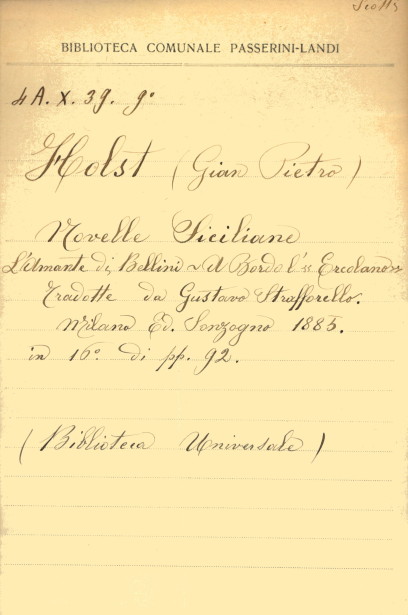 Scotti
BIBLIOTECA COMUNALE PASSERINI-LANDI
4A. X. 39. 9º
Holst (Gian Pietro)
Novelle Siciliane
L'Amante di Bellini ~ A Bordo l'"Ercolano"
Tradotte da Gustavo Strafforello.
Milano Ed. Sonzogno 1885.
in 16º di pp. 92.
(Biblioteca Universale)